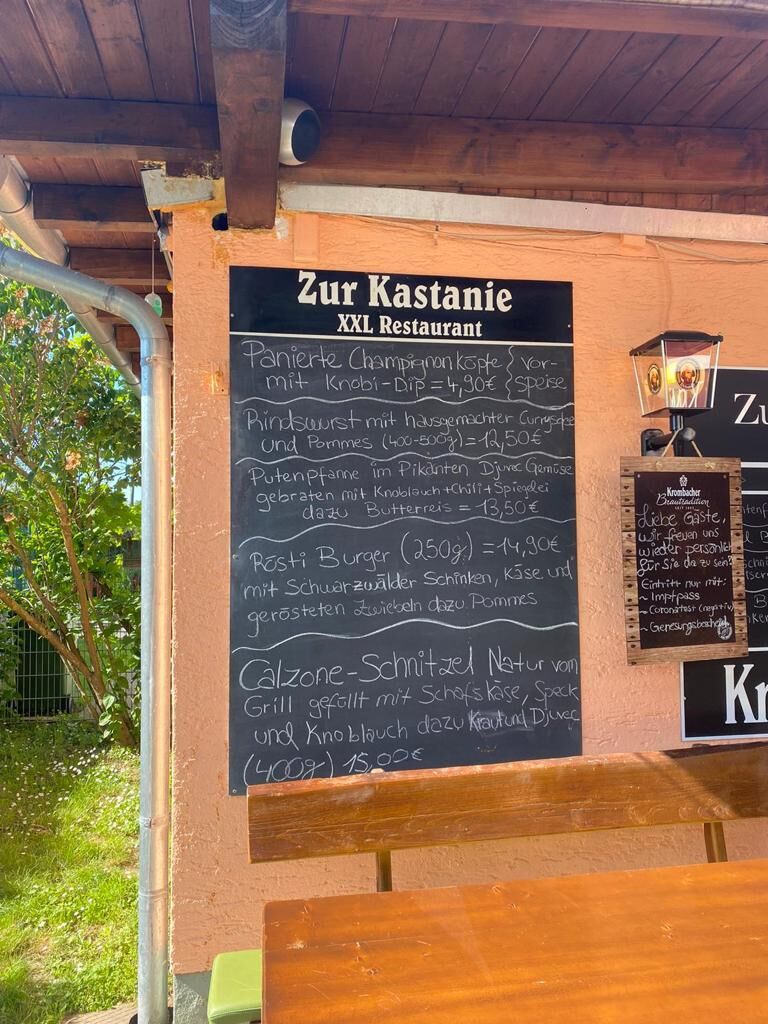 Zur Kastanie
XXL Restaurant
Panierte Champignonköpfe { vor-
mit Knobi-Dip = 4,90€ { speise
Rindswurst mit hausgemachter Currysoße
und Pommes (400-500g) = 12,50€
Putenpfanne im Pikanten Djuvec Gemüse
gebraten mit Knoblauch+Chili+Spiegelei
dazu Butterreis = 13,50€
Rösti Burger (250g) = 14,90€
mit Schwarzwälder Schinken, Käse und
gerösteten Zwiebeln dazu Pommes
Calzone-Schnitzel Natur vom
Grill gefüllt mit Schafskäse, Speck
und Knoblauch dazu Krautund Djuvec
(400g) 15,00€
Zu
Krombacher
Brautradition
Liebe Gäste,
wir freuen uns
wieder persönlich
für Sie da zu sein!
Eintritt nur mit:
~ Impfpass
~ Coronatest (negativ)
~ Genesungsbescheid
Kr